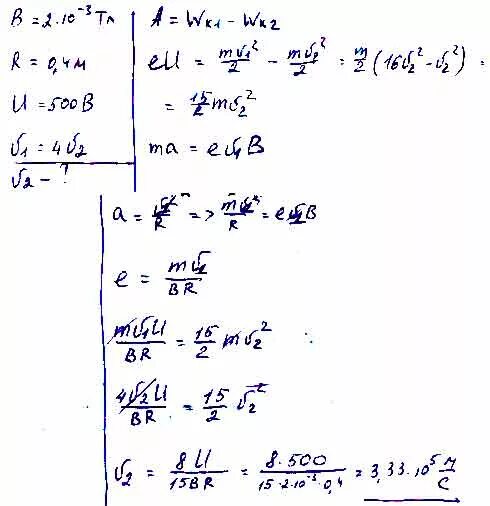 B = 2·10⁻³ Тл
R = 0,4 м
U = 500 В
υ₁ = 4υ₂
υ₂ - ?
A = Wк1 - Wк2
eU = mυ₁²/2 - mυ₂²/2 = m/2 (16υ₂² - υ₂²) =
= 15/2 mυ₂²
ma = eυ₁B
a = υ₁²/R => mυ₁²/R = eυ₁B
e = mυ₁/BR
mυ₁U/BR = 15/2 mυ₂²
4υ₂U/BR = 15/2 υ₂²
υ₂ = 8U/15BR = 8·500/15·2·10⁻³·0,4 = 3,33·10⁵ м/с